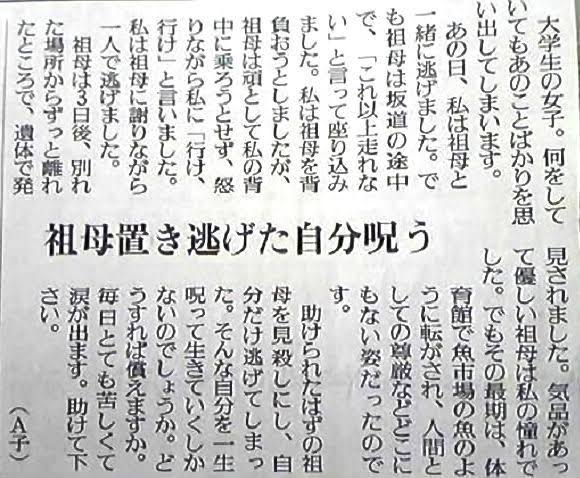 大学生の女子。何をして
いてもあのことばかりを思
い出してしまいます。
あの日、私は祖母と
一緒に逃げました。で
も祖母は坂道の途中
で、「これ以上走れな
い」と言って座り込み
ました。私は祖母を背
負おうとしましたが、
祖母は頑として私の背
中に乗ろうとせず、怒
りながら私に「行け、
行け」と言いました。
私は祖母に謝りながら
一人で逃げました。
祖母は3日後、別れ
た場所からずっと離れ
たところで、遺体で発
祖母置き逃げた自分呪う
見されました。気品があっ
て優しい祖母は私の憧れで
した。でもその最期は、体
育館で魚市場の魚のよ
うに転がされ、人間と
しての尊厳などどこに
もない姿だったので
す。
助けられたはずの祖
母を見殺しにし、自
分だけ逃げてしまっ
た。そんな自分を一生
呪って生きていくしか
ないのでしょうか。ど
うすれば償えますか。
毎日とても苦しくて
涙が出ます。助けて下
さい。
（A子）